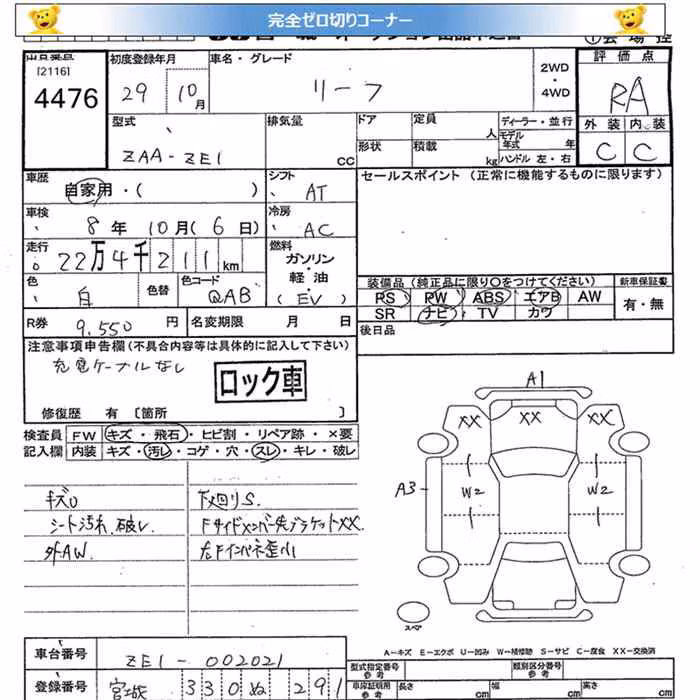 完全ゼロ切りコーナー
[2116]
4476
初度登録年月
29 10月
車名・グレード
リーフ
2WD・4WD
評価点
RA
外装 内装
C C
型式
ZAA-ZE1
排気量
CC
ドア
形状
定員
人
積載
kg
ディーラー・並行
モデル年式 年
ハンドル 左・右
車歴
自家用・( )
シフト
AT
セールスポイント (正常に機能するものに限ります)
車検
8年 10月(6日)
冷房
AC
走行
22万4千211km
燃料
ガソリン・軽油・(EV)
色
白
色替
色コード
QAB
装備品(純正品に限り○をつけてください)
PS PW ABS エアB AW
SR ナビ TV カワ
新車保証書
有・無
R券 9,550円
名変期限 月 日
後日品
注意事項申告欄(不具合内容等は具体的に記入して下さい)
充電ケーブルなし
ロック車
修復歴 有 〔箇所 〕
検査員記入欄
FW キズ・飛石・ヒビ割・リペア跡・×要
内装 キズ・汚レ・コゲ・穴・スレ・キレ・破レ
キズU
シート汚れ、破レ
外AW
下廻りS
Fサイドメンバー先ブラケットXX
左Fインパネ歪小
A1
XX XX XX
A3
W2 W2
スペア
A-キズ E-エクボ U-凹み W-補修跡 S-サビ C-腐食 XX-交換済
車台番号
ZE1-002021
登録番号
宮城 330 ぬ 291
型式指定番号 参考
類別区分番号 参考
車庫証明用 参考
長さ cm 幅 cm 高さ cm